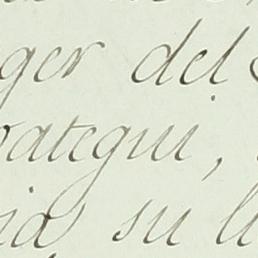 ger del
ategui,
ia su